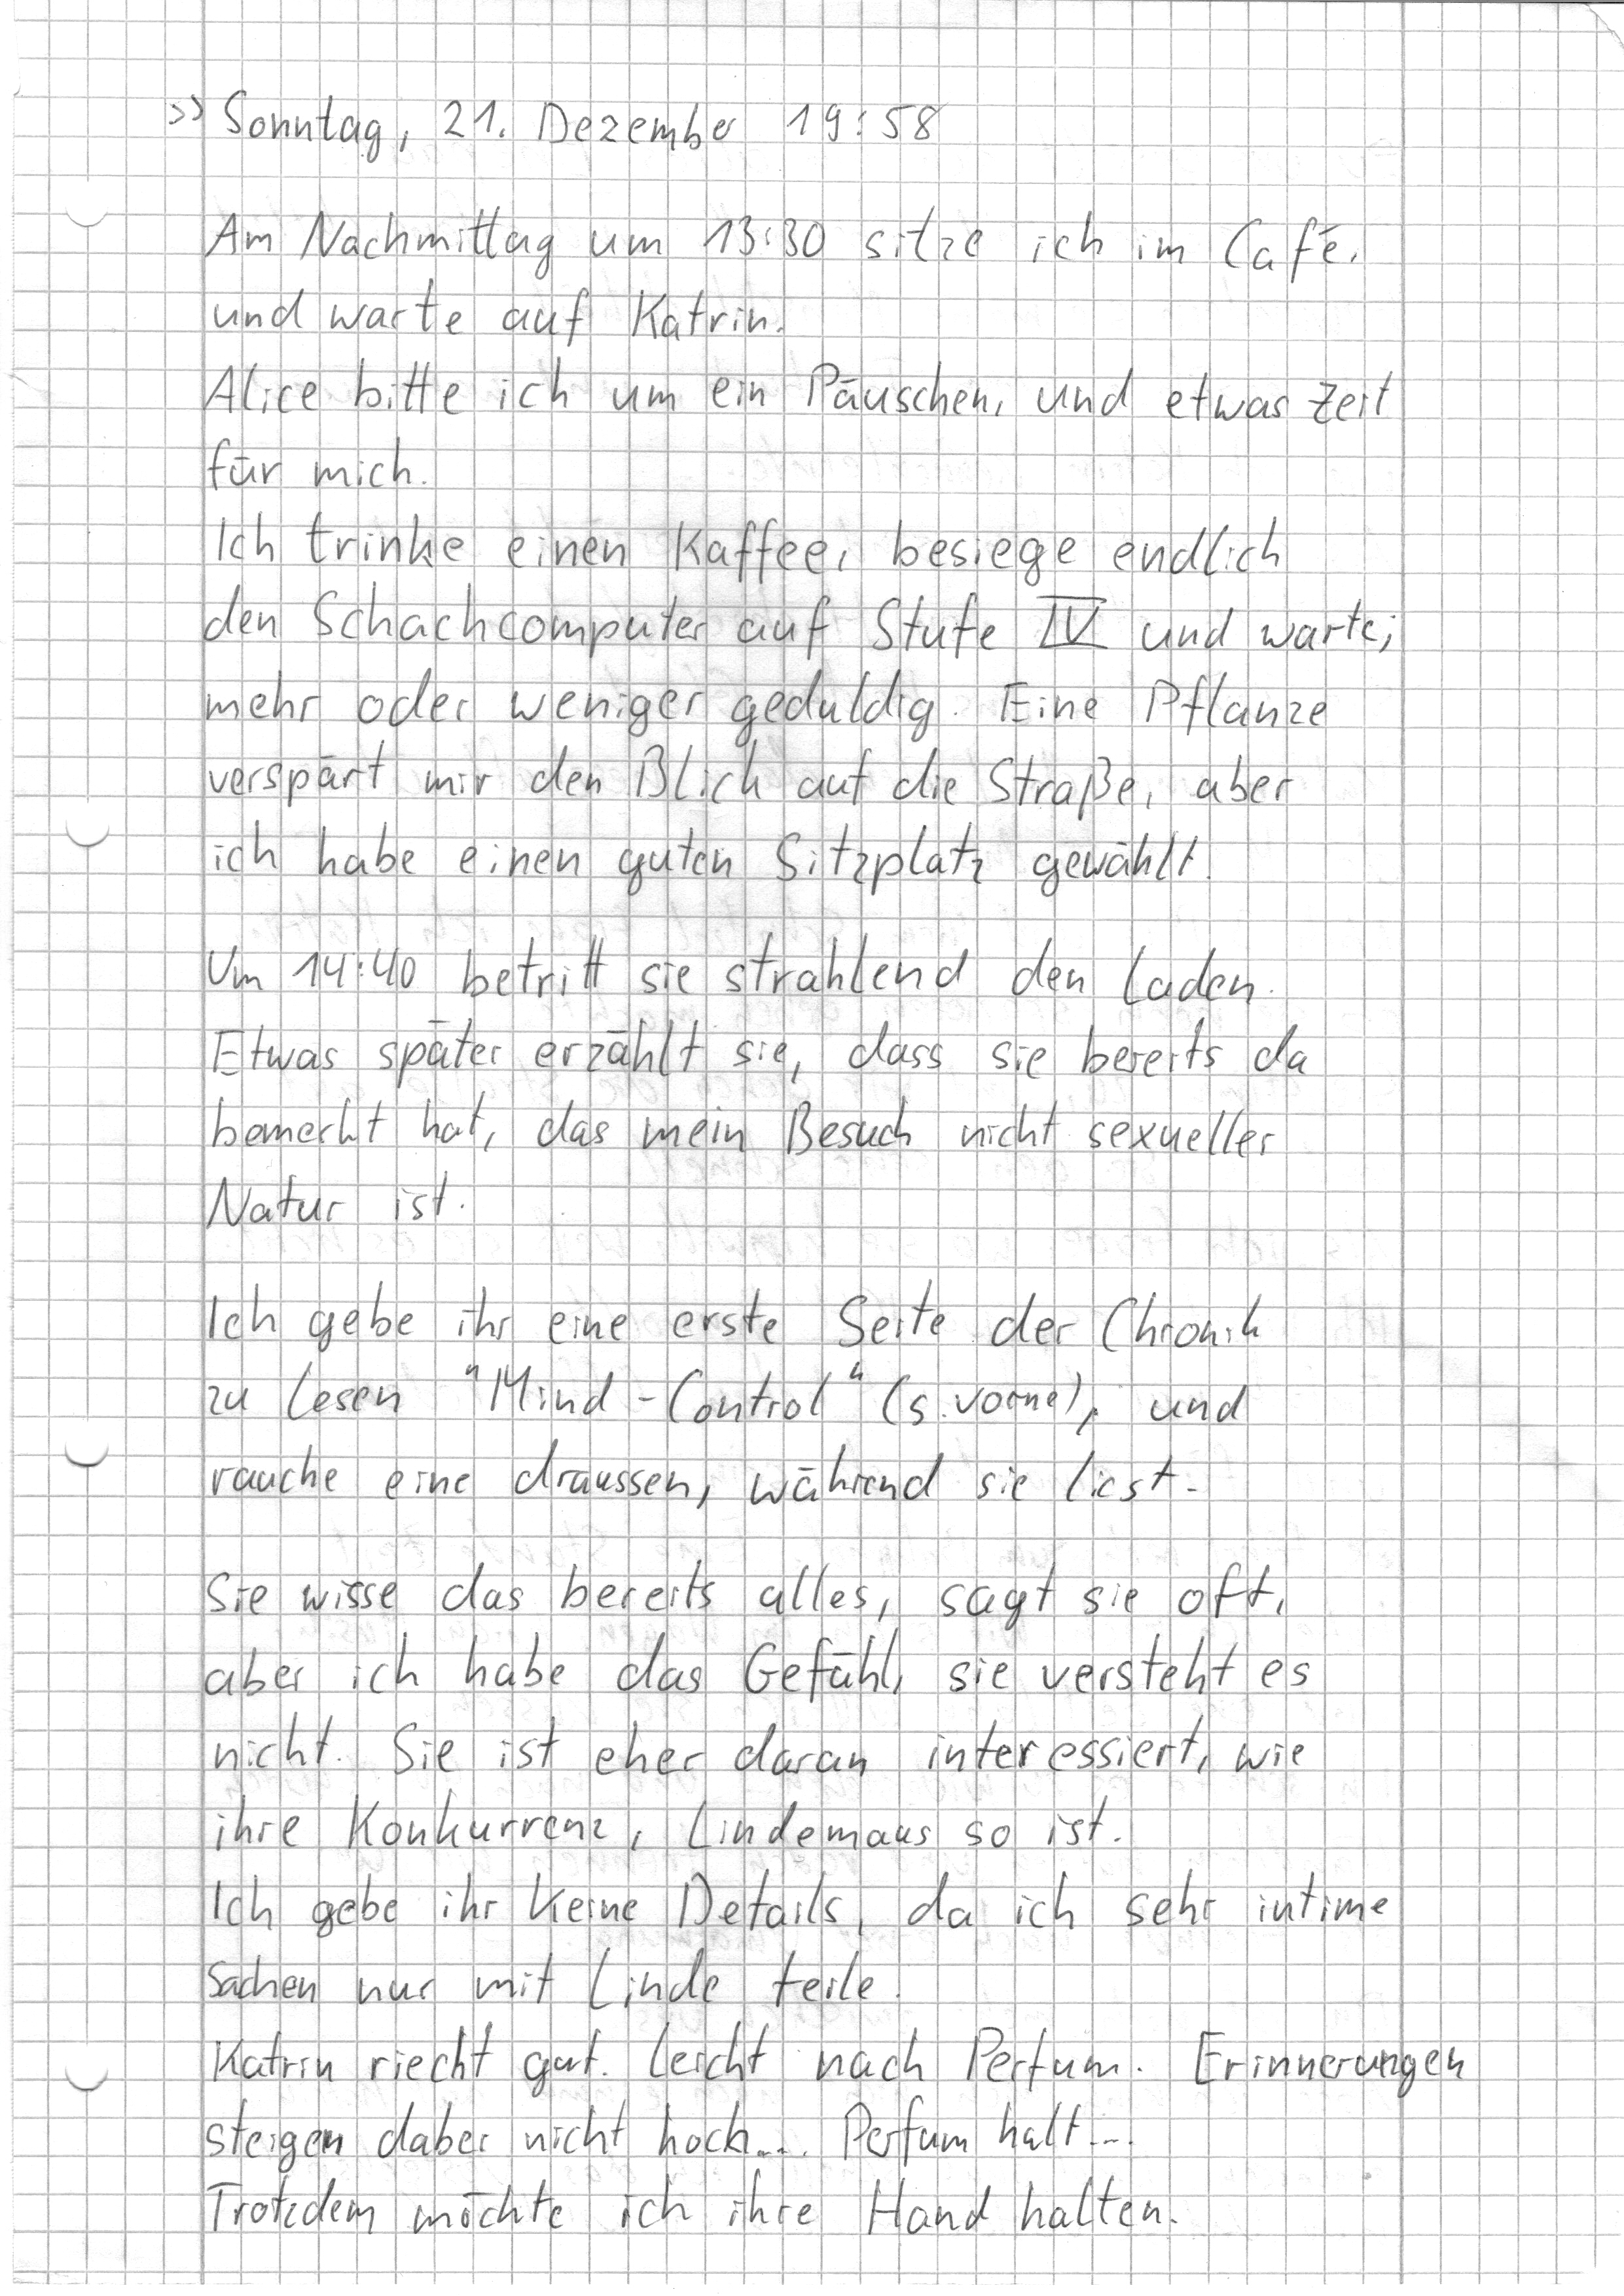 >> Sonntag, 21. Dezember 19:58
Am Nachmittag um 13:30 sitze ich im Café,
und warte auf Katrin.
Alice bitte ich um ein Päuschen, und etwas Zeit
für mich.
Ich trinke einen Kaffee, besiege endlich
den Schachcomputer auf Stufe IV und warte;
mehr oder weniger geduldig. Eine Pflanze
verspärt mir den Blick auf die Straße, aber
ich habe einen guten Sitzplatz gewählt.
Um 14:40 betritt sie strahlend den Laden.
Etwas später erzählt sie, dass sie bereits da
bemerkt hat, das mein Besuch nicht sexueller
Natur ist.
Ich gebe ihr eine erste Seite der Chronik
zu lesen "Mind-Control" (s. vorne), und
rauche eine draussen, während sie liest.
Sie wisse das bereits alles, sagt sie oft,
aber ich habe das Gefühl, sie versteht es
nicht. Sie ist eher daran interessiert, wie
ihre Konkurrenz, Lindemaus so ist.
Ich gebe ihr keine Details, da ich sehr intime
Sachen nur mit Linde teile.
Katrin riecht gut. Leicht nach Perfum. Erinnerungen
steigen dabei nicht hoch... Perfum halt...
Trotzdem möchte ich ihre Hand halten.